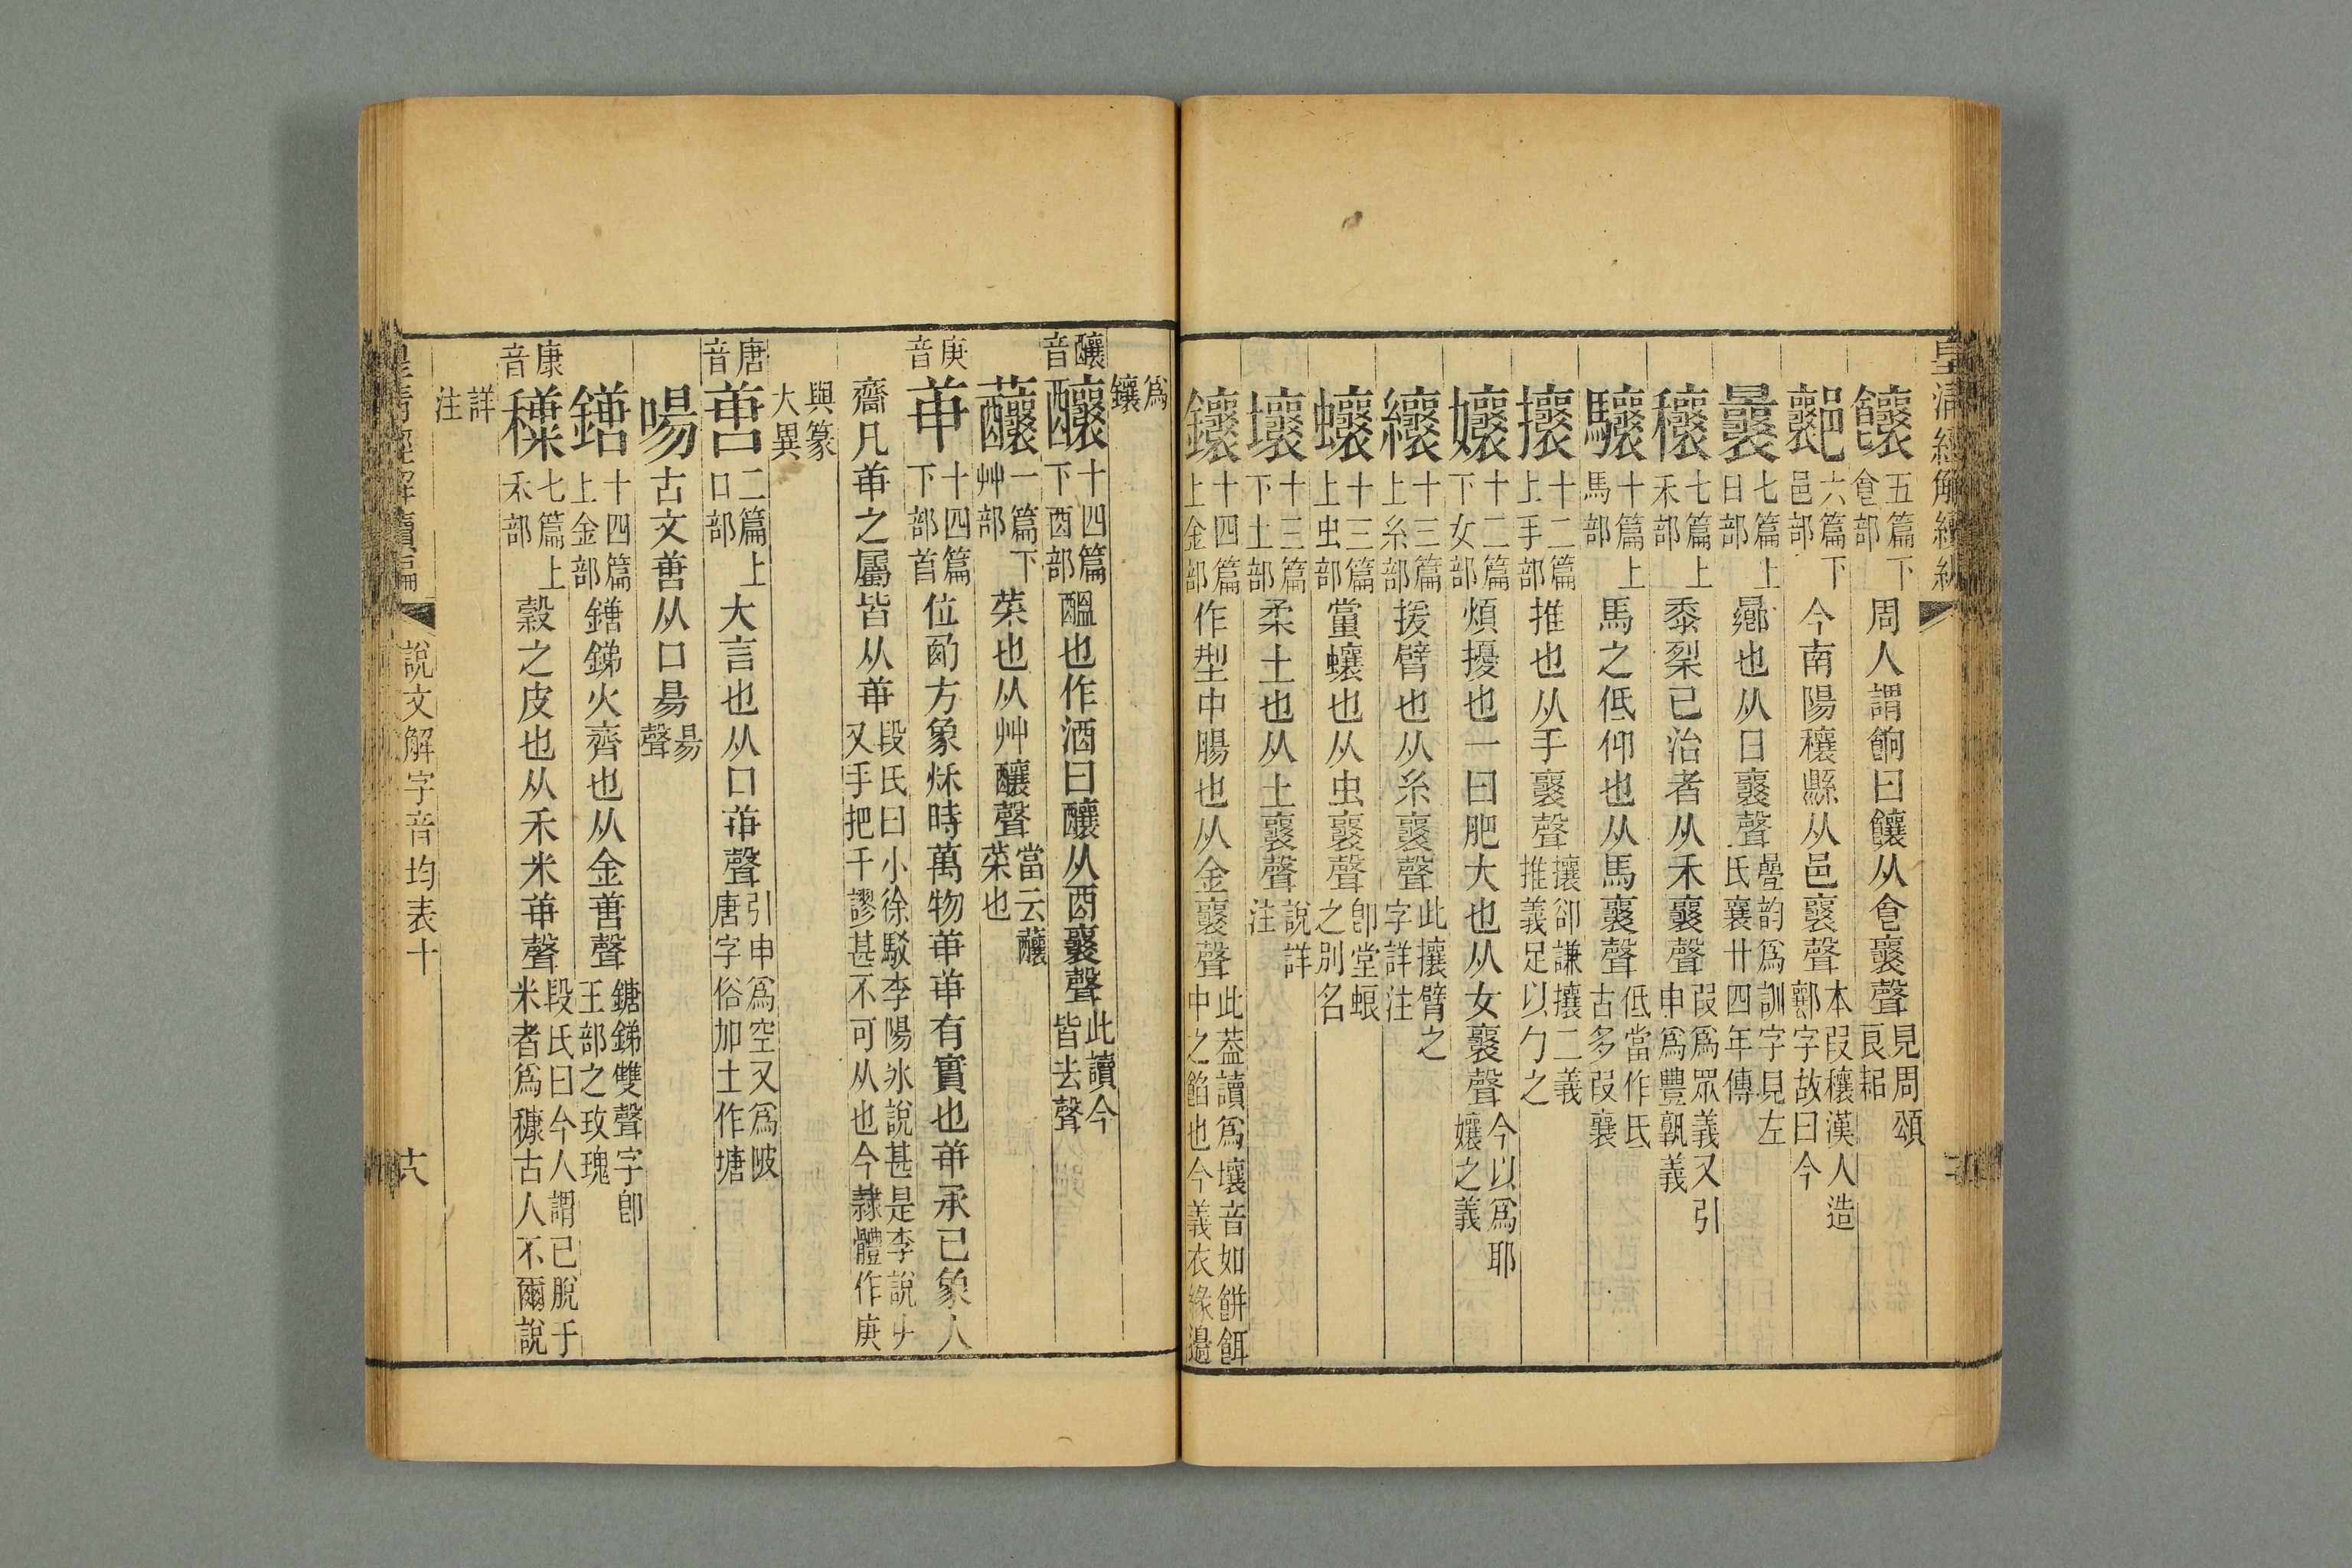 皇清經解續編
饟五篇下𠊊部周人謂餉曰饟从𠊊襄聲見周頌良耜
鄴六篇下邑部今南陽穰縣从邑襄聲本叚穰漢人造鄴字故曰今
曩七篇上日部曏也从日襄聲曡韵爲訓字見左氏襄卄四年傳
穰七篇上禾部黍𥞥已治者从禾襄聲叚爲眾義又引申爲豐孰義
驤十篇上馬部馬之低仰也从馬襄聲低當作氐古多叚襄
攘十二篇上手部推也从手襄聲攘卻謙攘二義推義足以勹之
孃十二篇下女部煩擾也一曰肥大也从女襄聲今以爲耶孃之義
纕十三篇上糸部援臂也从糸襄聲此攘臂之字詳注
蠰十三篇上虫部當蠰也从虫襄聲卽堂蜋之別名
壤十三篇下土部柔土也从土襄聲說詳注
鑲十四篇上金部作型中腸也从金襄聲此葢讀爲壤音如餅餌中之餡也今義衣緣邊
爲鑲
釀音釀十四篇下酉部醞也作酒曰釀从酉襄聲此讀今皆去聲
蘸一篇下艸部菜也从艸釀聲當云蘸菜也
庚音庚十四篇下部首位西方象秌時萬物庚庚有實也庚承己象人
齋凡庚之屬皆从庚段氏曰小徐駁李陽冰說甚是李說从又手把干謬甚不可从也今隸體作庚
與篆大異
唐音唐二篇上口部大言也从口庚聲引申爲空又爲陂唐字俗加土作塘
啺古文唐从口昜昜聲
鎕十四篇上金部鎕銻火齊也从金唐聲鎕銻雙聲字卽王部之玫瑰
康音穅七篇上禾部穀之皮也从禾米庚聲段氏曰今人謂已脫于米者爲穅古人不爾說
詳注
皇清經解續編 說文解字音均表十 六